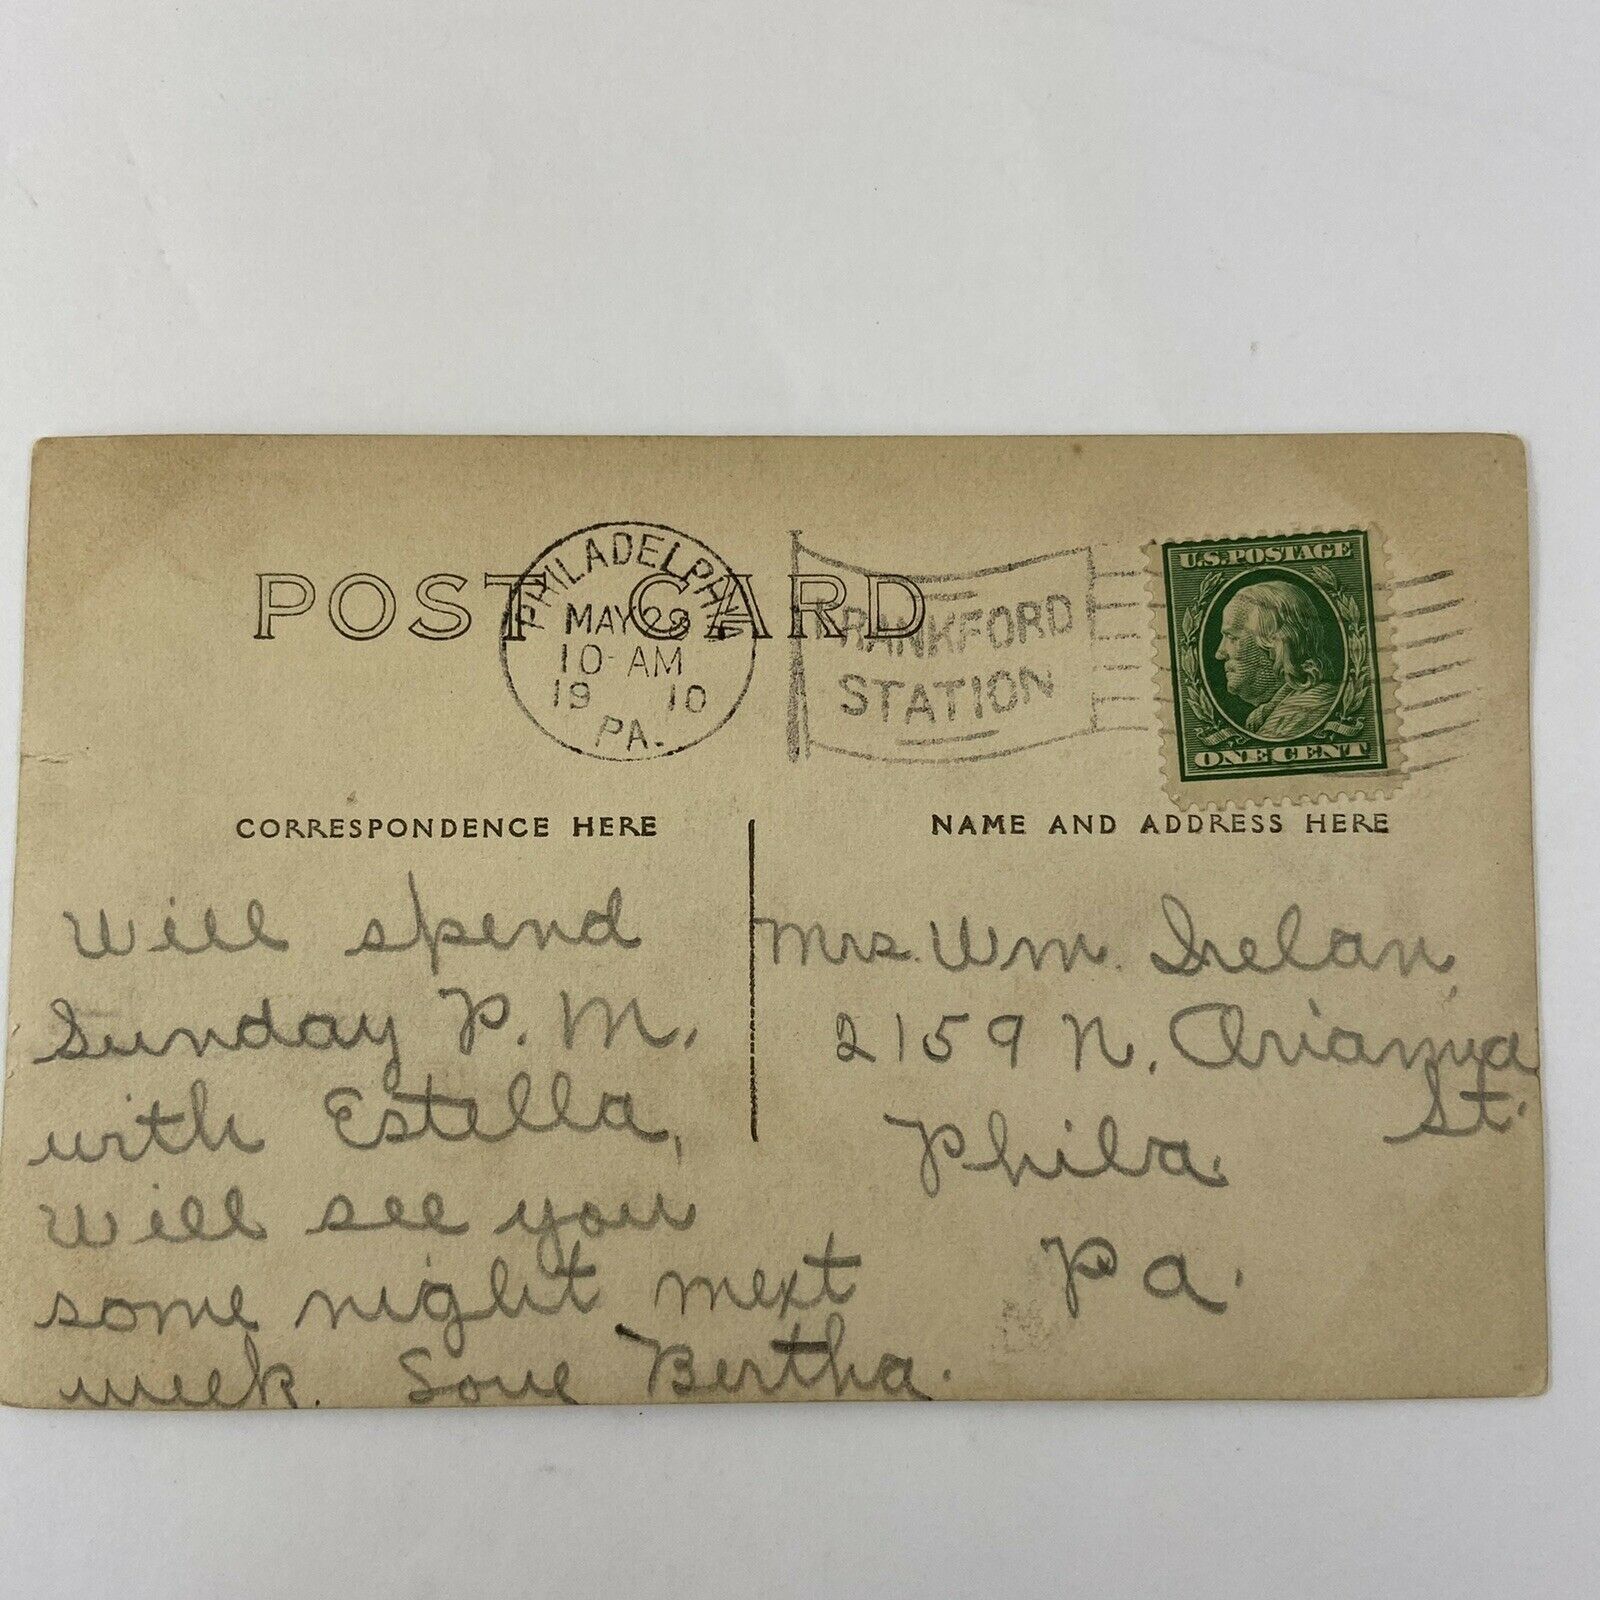 POST CARD
PHILADELPHIA
MAY 28
10-AM
19 10
PA.
FRANKFORD
STATION
U.S.POSTAGE
ONE CENT
CORRESPONDENCE HERE
Will spend
Sunday P. M.
with Estella,
Will see you
some night next
week. Love Bertha.
NAME AND ADDRESS HERE
Mrs. Wm. Irelan,
2159 N. Orianna
St.
Phila.
Pa.